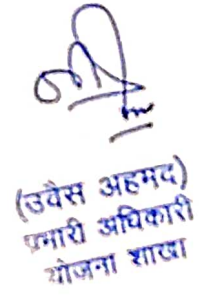 (उवैस अहमद)
प्रभारी अधिकारी
योजना शाखा